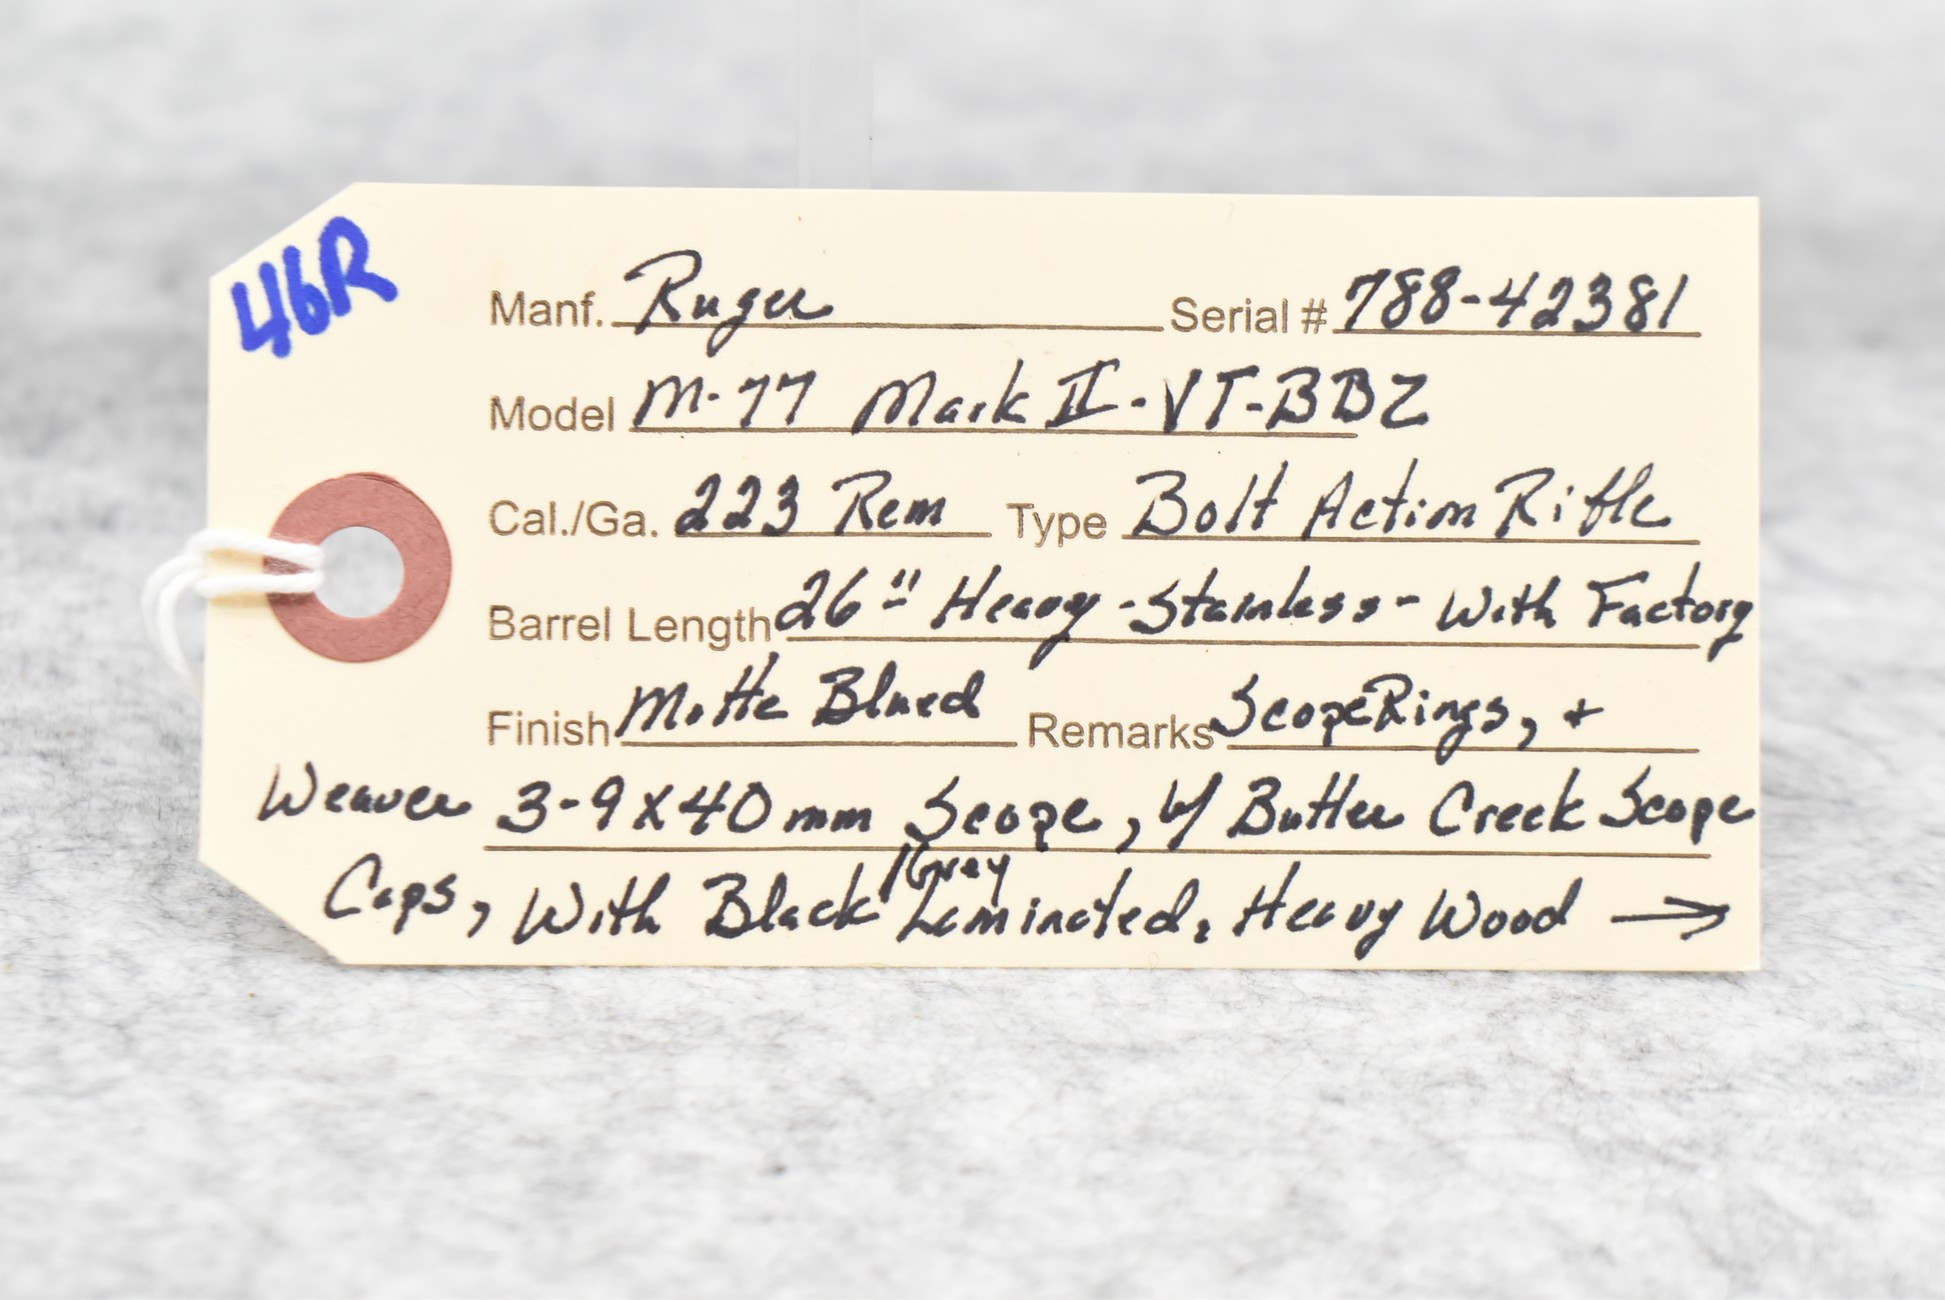 46R
Manf. Ruger Serial # 788-42381
Model M-77 Mark II-VT-BBZ
Cal./Ga. 223 Rem Type Bolt Action Rifle
Barrel Length 26" Heavy-Stainless- With Factory
Finish Matte Blued Remarks Scope Rings, +
Weaver 3-9X40mm Scope, w/ Butler Creek Scope
Caps, With Black/Grey Laminated, Heavy Wood →